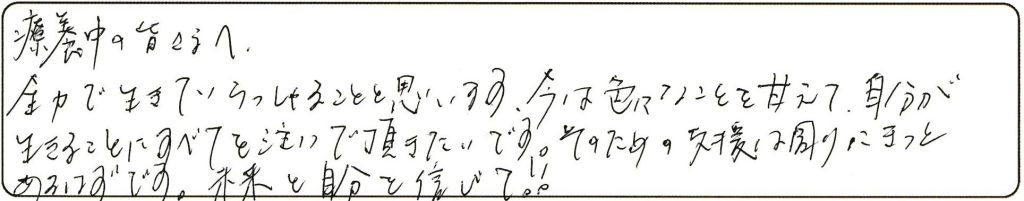 療養中の皆さまへ、
全力で生きていらっしゃることと思います、今は色々なことを甘えて、自分が
生きることにすべてを注いで頂きたいです。そのための支援は周りにきっと
あるはずです。未来と自分を信じて!!